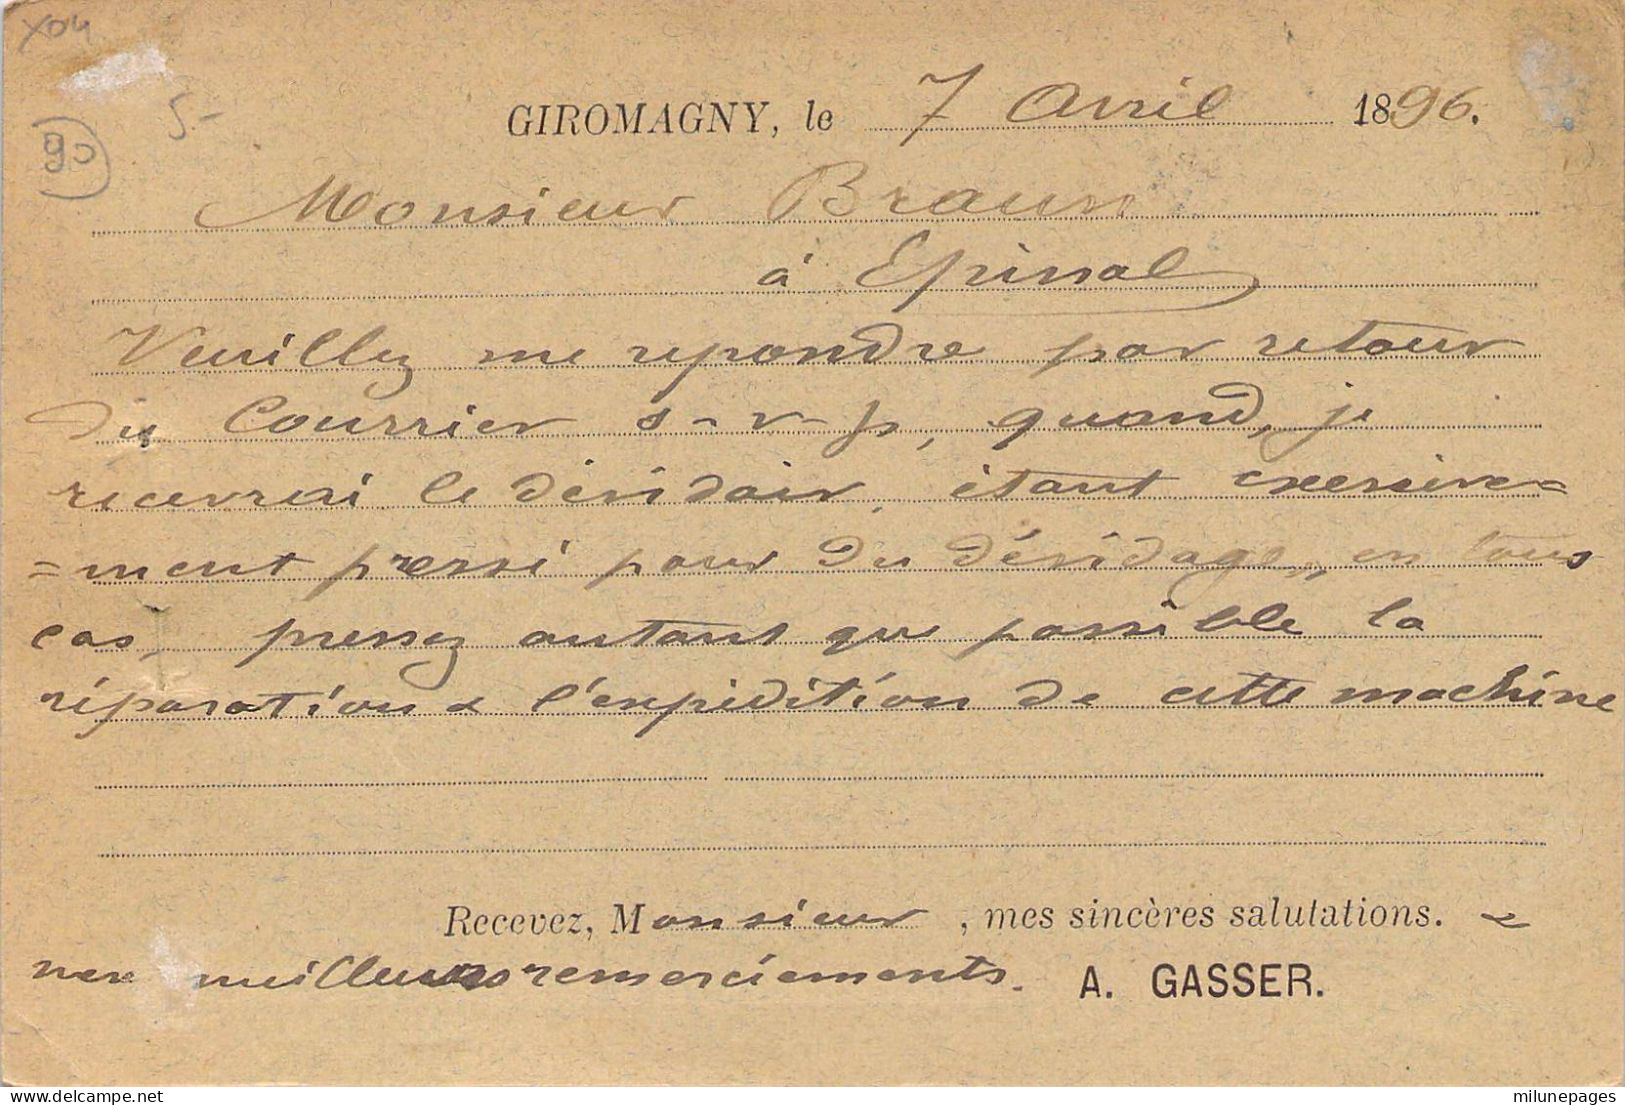 X04
5-
90
GIROMAGNY, le 7 Avril 1896.
Monsieur Braun
à Epinal
Veuillez me repondre par retour
du Courrier s-v-p, quand, je
recevrai le dévidoir, étant excessive=
=ment pressé pour du dévidage, en tous
cas, pressez autant que possible la
réparation & l'expédition de cette machine
Recevez, Monsieur, mes sincères salutations. &
mes meilleurs remerciements. A. GASSER.
delcampe.net
milunepages